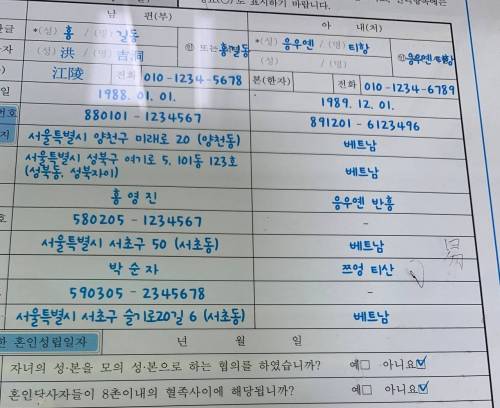 표시하기 바랍니다.
남 편(부) 아 내(처)
*(성) 홍 / (명) 길동 ㊞ 또는 홍길동 *(성) 응우옌 / (명) 티항 ㊞ 응우옌 티항
(성) 洪 / (명) 吉洞 (성) / (명)
江陵 전화 010-1234-5678 본(한자) 전화 010-1234-6789
일 1988. 01. 01. 1989. 12. 01.
번호 880101 - 1234567 891201 - 6123496
서울특별시 양천구 미래로 20 (양천동) 베트남
서울특별시 성북구 여기로 5, 101동 123호
(성북동, 성북자이) 베트남
홍영진 응우옌 반흥
호 580205 - 1234567 -
서울특별시 서초구 50 (서초동) 베트남
박순자 쯔엉 티산
590305 - 2345678 -
서울특별시 서초구 슬기로20길 6 (서초동) 베트남
한 혼인성립일자 년 월 일
자녀의 성·본을 모의 성·본으로 하는 협의를 하였습니까? 예□ 아니요☑
혼인당사자들이 8촌이내의 혈족사이에 해당됩니까? 예□ 아니요☑